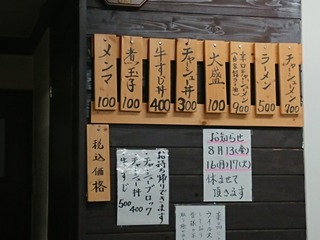 チャーシューメン
700
ラーメン
500
辛口チャーシューメン
900
大盛
100
チャーシュー丼
300
牛すじ丼
400
煮玉子
100
メンマ
100
税込価格
お持ち帰りできます
チャーシューブロック
チャーシュー丼
牛すじ
400
500
お知らせ
8月13(金)
16(月)17(火)
休ませて
頂きます